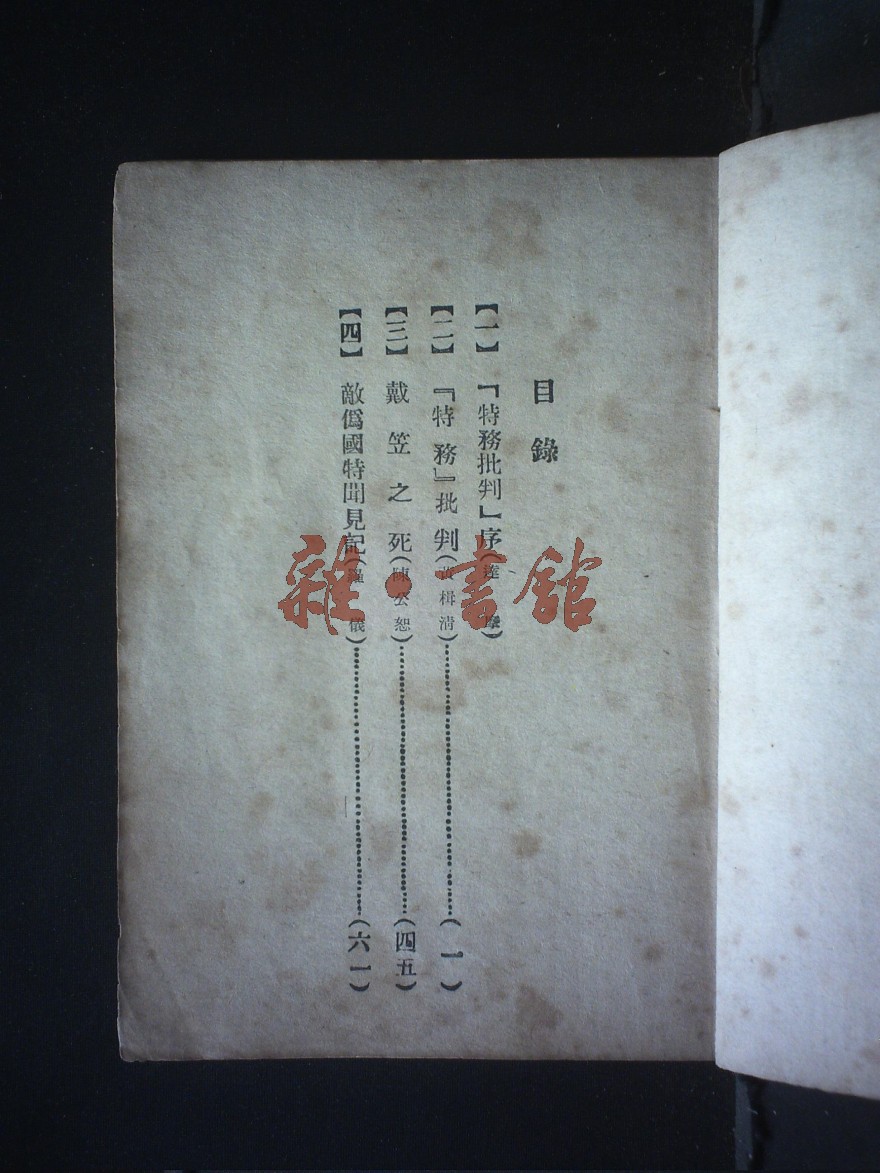 目錄
【一】『特務批判】序(達摩)
【二】『特務』批判(黃楫清)…………(一)
【三】戴笠之死(陳公恕)…………(四五)
【四】敵僞國特聞見記(儀)…………(六一)
雜·書館